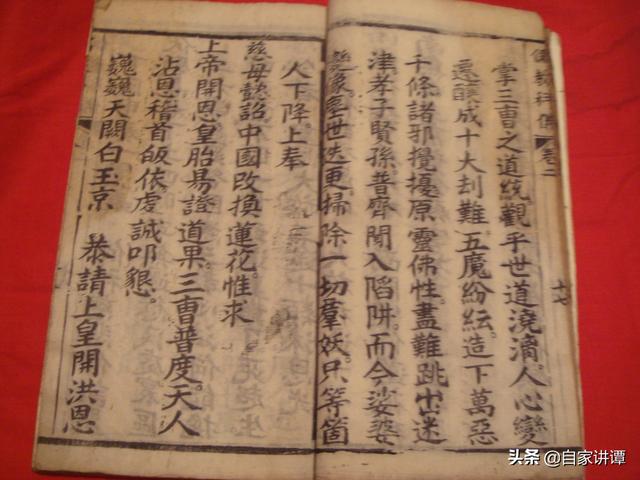 卷二
十七
掌三曹之道統觀乎世道澆漓人心變
遷釀成十大刦難五魔紛紜造下萬惡
千條諸邪攪擾原靈佛性盡難跳出迷
津孝子賢孫普齊闖入陷阱而今娑婆
世迭更掃除一切羣妖只等箇
人下降上奉
慈母懿詔中國改換蓮花惟求
上帝開恩皇胎易證道果三曹普度天人
沾恩稽首皈依虔誠叩懇。
巍巍天闕白玉京 恭請上皇開洪恩
头条 @自家讲谭